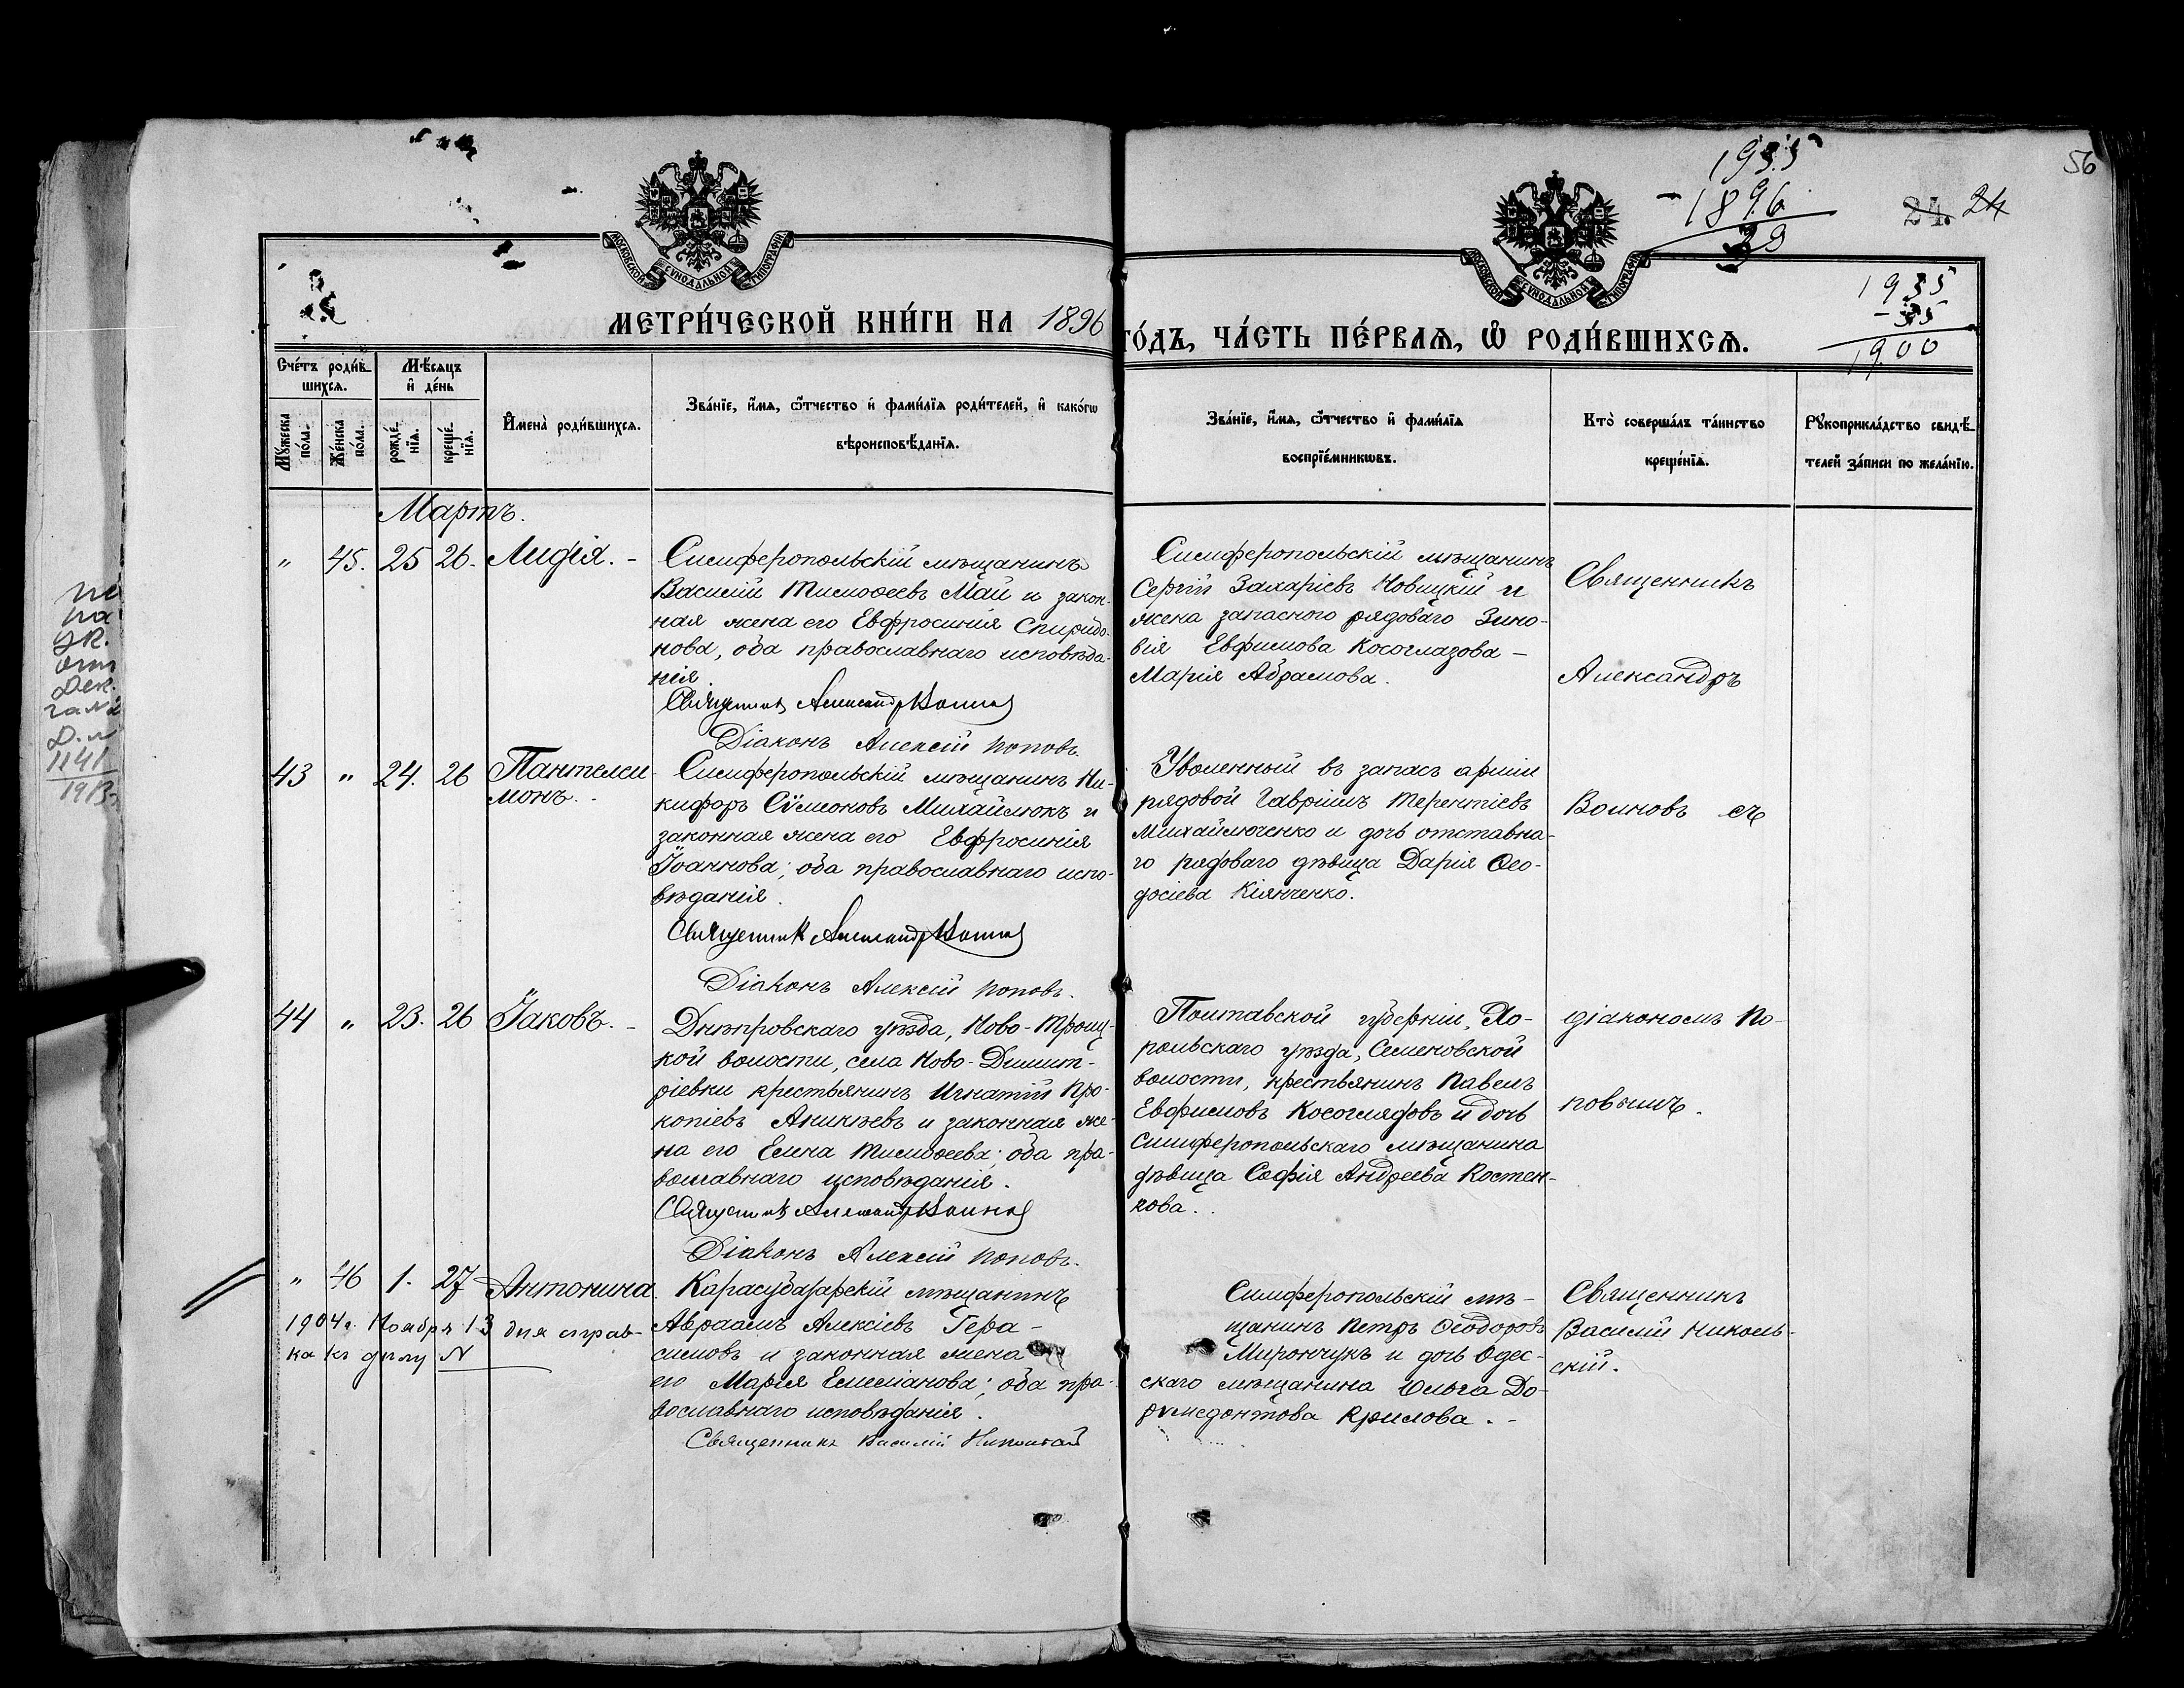 56
1935
- 1896
39
24. 24
1935
- 35
1900
МОСКОВСКОЙ СѴНОДАЛЬНОЙ ТИПОГРАФІИ
МОСКОВСКОЙ СѴНОДАЛЬНОЙ ТИПОГРАФІИ
МЕТРИ́ЧЕСКОЙ КНИ́ГИ НА 1896
ГО́ДЪ, ЧА́СТЬ ПЕ́РВАѦ, Ѽ РОДИ́ВШИХСѦ.
Сче́тъ роди́в-
шихсѧ.
Мѣ́сѧцъ
и҆ де́нь
Мꙋжеска
по́ла.
Же́нска
по́ла.
рожде́-
нїѧ.
креще́-
нїѧ.
И҆мена̀ роди́вшихсѧ.
Зва́нїе, и҆́мѧ, ѻ҆́тчество и҆ фами́лїѧ роди́телей, и҆ како́гѡ
вѣроисповѣ́данїѧ.
Зва́нїе, и҆́мѧ, ѻ҆́тчество и҆ фами́лїѧ
воспрїе́мникѡвъ.
Кто̀ соверша́лъ та́инство
креще́нїѧ.
Рꙋкоприкла́дство свидѣ́-
телей за́писи по жела́нїю.
Мартъ.
" 45. 25 26. Лидія. -
Симферопольскій мѣщанинъ
Василій Тимоѳеевъ Май и закон-
ная жена его Евфросинія Спиридо-
нова, оба православнаго исповѣда-
нія.
Священникъ Александръ Воиновъ
Діаконъ Алексій Поповъ.
Симферопольскій мѣщанинъ
Сергій Захаріевъ Новицкій и
жена запаснаго рядоваго Зино-
вія Евфимова Косоглазова -
Марія Абрамова.
Священникъ
Александръ
43 " 24. 26 Пантелеи-
монъ. -
Симферопольскій мѣщанинъ Ни-
кифоръ Сѵмеоновъ Михайлюкъ и
законная жена его Евфросинія
Іоаннова; оба православнаго испо-
вѣданія.
Священникъ Александръ Воиновъ
Діаконъ Алексій Поповъ.
Уволенный въ запасъ арміи
рядовой Гавріилъ Терентіевъ
Михайлюченко и дочь отставна-
го рядоваго дѣвица Дарія Ѳео-
досіева Кіянченко.
Воиновъ съ
44 " 23. 26 Іаковъ. -
Днѣпровскаго уѣзда, Ново-Троиц-
кой волости, села Ново-Димит-
ріевки крестьянинъ Игнатій Про-
копіевъ Аникѣевъ и законная же-
на его Елена Тимоѳеева; оба пра-
вославнаго исповѣданія.
Священникъ Александръ Воиновъ
Діаконъ Алексій Поповъ.
Полтавской губерніи, Хо-
рольскаго уѣзда, Семеновской
волости, крестьянинъ Павелъ
Евфимовъ Косоглядовъ и дочь
симферопольскаго мѣщанина
дѣвица Софія Андреева Костен-
кова.
діакономъ По-
повымъ.
" 46 1. 27 Антонина.
1904г. Ноября 13 дня справ-
ка къ дѣлу N
Карасубазарскій мѣщанинъ
Авраамъ Алексіевъ Гера-
симовъ и законная жена
его Марія Емеліанова; оба пра-
вославнаго исповѣданія.
Священникъ Василій Никольскій
Симферопольскій мѣ-
щанинъ Петръ Ѳеодоровъ
Мирончукъ и дочь Одес-
скаго мѣщанина Ольга До-
римедонтова Крилова. -
Священникъ
Василій Николь-
скій.
1141